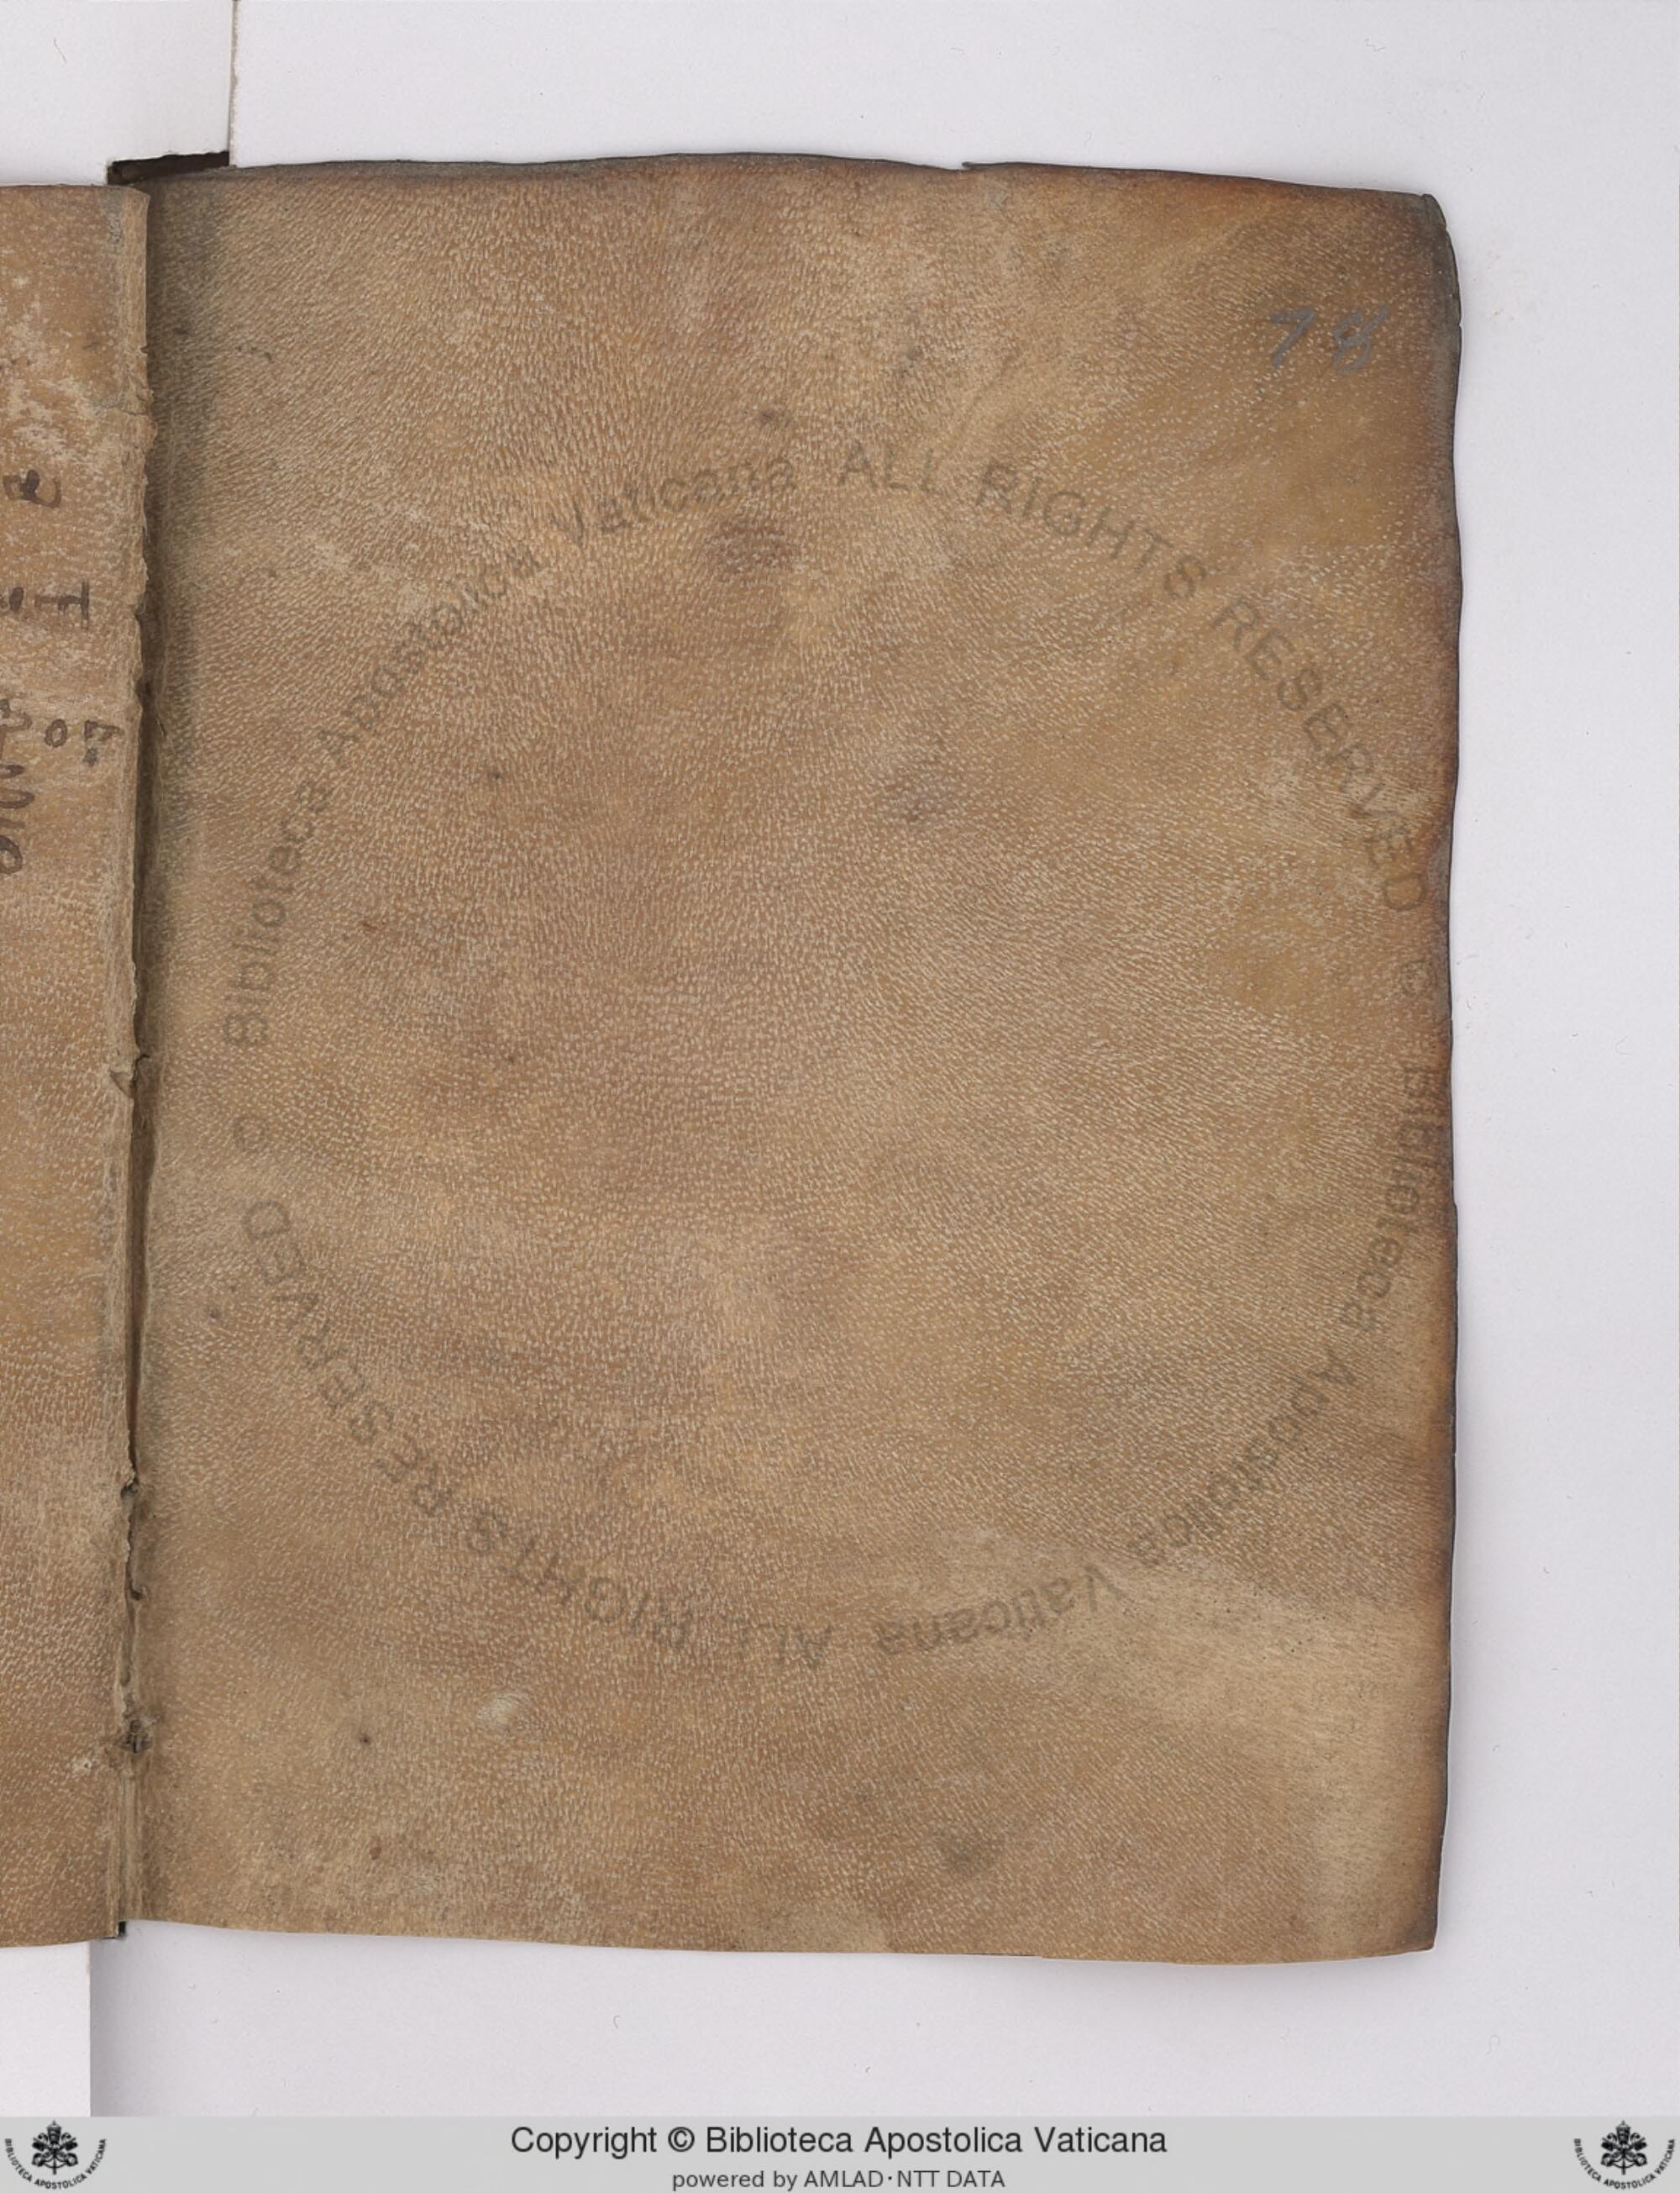 78
Biblioteca Apostolica Vaticana ALL RIGHTS RESERVED ©
Biblioteca Apostolica Vaticana ALL RIGHTS RESERVED ©
Copyright © Biblioteca Apostolica Vaticana
powered by AMLAD·NTT DATA
BIBLIOTECA APOSTOLICA VATICANA
BIBLIOTECA APOSTOLICA VATICANA